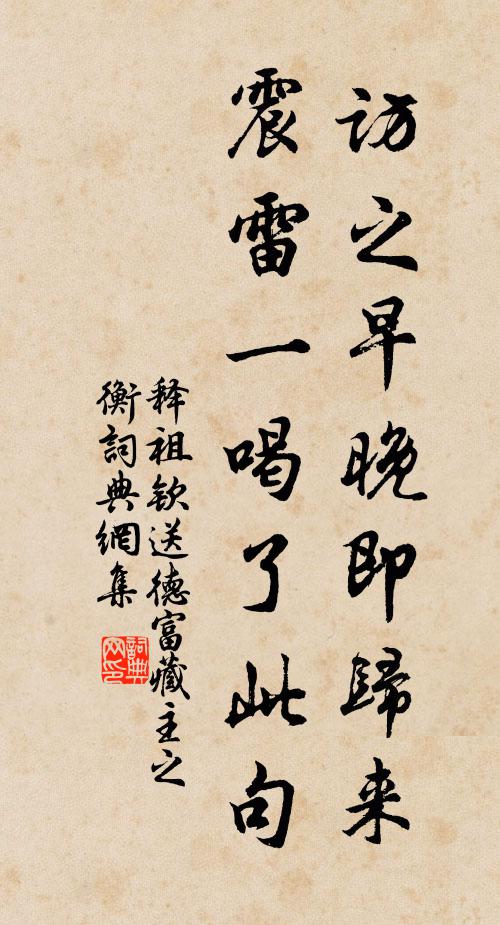 访之早晚即歸来
震雷一喝了此句
释祖欽送德富藏主之
衡詞典網集
詞典
网印